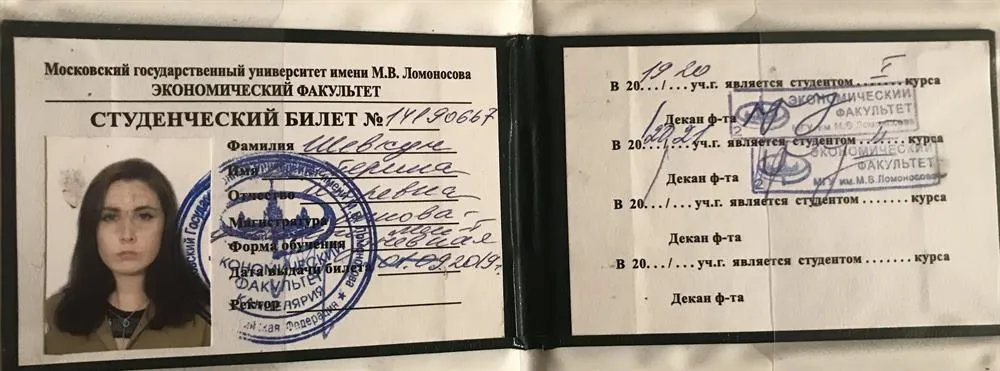 Московский государственный университет имени М.В. Ломоносова
ЭКОНОМИЧЕСКИЙ ФАКУЛЬТЕТ
СТУДЕНЧЕСКИЙ БИЛЕТ № 14190667
Фамилия Шевкун
Имя
Отчество
Магистратура
Форма обучения
Дата выдачи билета 01.09.2019г.
Ректор
ЭКОНОМИЧЕСКИЙ
ФАКУЛЬТЕТ
КАНЦЕЛЯРИЯ
В 2019/20 уч.г. является студентом I курса
Декан ф-та
ЭКОНОМИЧЕСКИЙ
ФАКУЛЬТЕТ
МГУ им.М.В.Ломоносова
2
В 20.../... уч.г. является студентом ....... курса
Декан ф-та
ЭКОНОМИЧЕСКИЙ
ФАКУЛЬТЕТ
МГУ им.М.В.Ломоносова
2
В 20.../... уч.г. является студентом ....... курса
Декан ф-та
В 20.../... уч.г. является студентом ....... курса
Декан ф-та